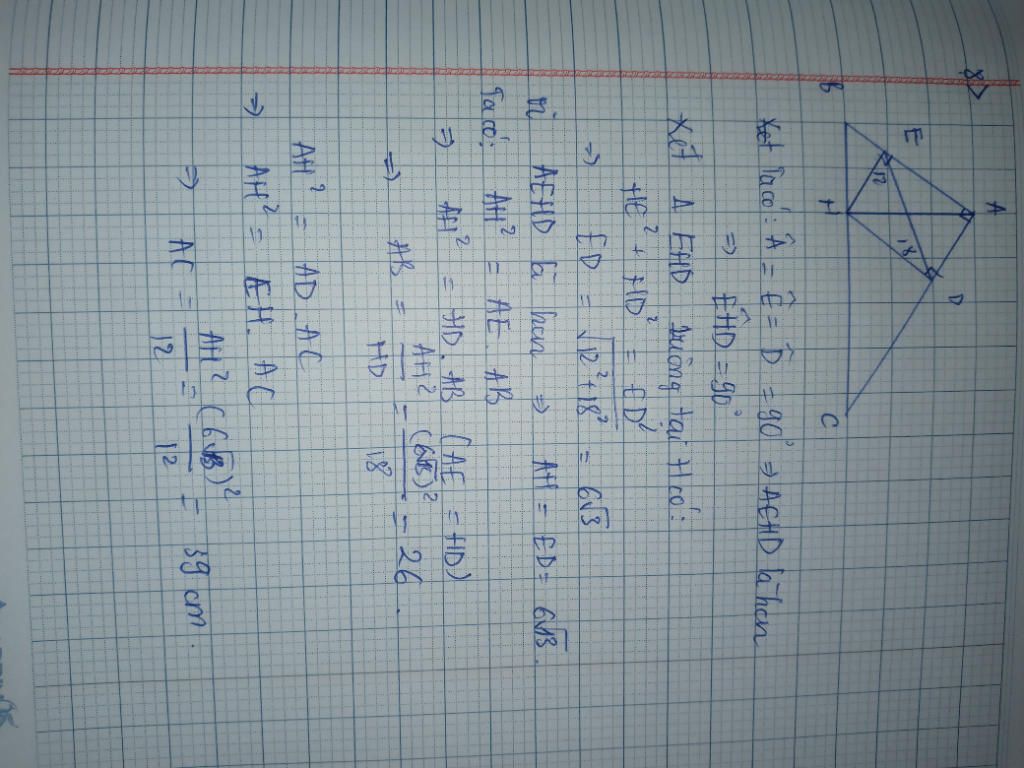 8
A
E
D
12
18
B
H
C
Xét Ta có: Â = Ê = D̂ = 90° ⇒ AEHD là hcn
⇒ EĤD = 90°
Xét Δ EHD vuông tại H có:
HE² + HD² = ED²
⇒ ED = √12²+18² = 6√13
Vì AEHD là hcn ⇒ AH = ED = 6√13.
Ta có: AH² = AE. AB
⇒ AH² = HD. AB (AE = HD)
⇒ AB = AH²/HD = (6√13)²/18 = 26.
AH² = AD. AC
⇒ AH² = EH. AC
⇒ AC = AH²/12 = (6√13)²/12 = 39 cm.